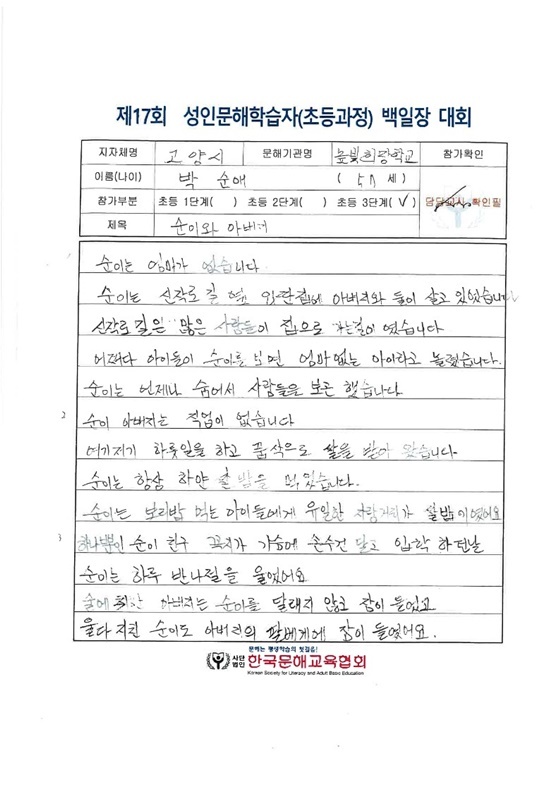 제17회 성인문해학습자(초등과정) 백일장 대회
지자체명 고양시 문해기관명 높빛희망학교 참가확인
이름(나이) 박 순애 ( 57 세)
참가부분 초등 1단계( ) 초등 2단계( ) 초등 3단계(✓) 담당교사 확인필
제목 순이와 아버지
순이는 엄마가 없습니다
순이는 신작로 길 옆 외딴집에 아버지와 둘이 살고 있었습니다
신작로 길은 많은 사람들이 집으로 가는길이 였습니다
어쩌다 아이들이 순이를 보면 엄마없는 아이라고 놀렸습니다.
순이는 언제나 숨어서 사람들을 보곤 했습니다
2 순이 아버지는 직업이 없습니다
여기저기 하룻일을 하고 품삯으로 쌀을 받아 왔습니다.
순이는 항상 하얀 쌀 밥을 먹었습니다.
순이는 보리밥 먹는 아이들에게 유일한 자랑거리가 쌀밥이였어요
3 하나뿐인 순이 친구 꼭지가 가슴에 손수건 달고 입학 하던날
순이는 하루 반나절을 울었어요
술에 취한 아버지는 순이를 달래지 않고 잠이 들었고
울다 지친 순이도 아버지의 팔베게에 잠이 들였어요.
문해는 평생학습의 첫걸음!
사단법인 한국문해교육협회
Korean Society for Literacy and Adult Basic Education